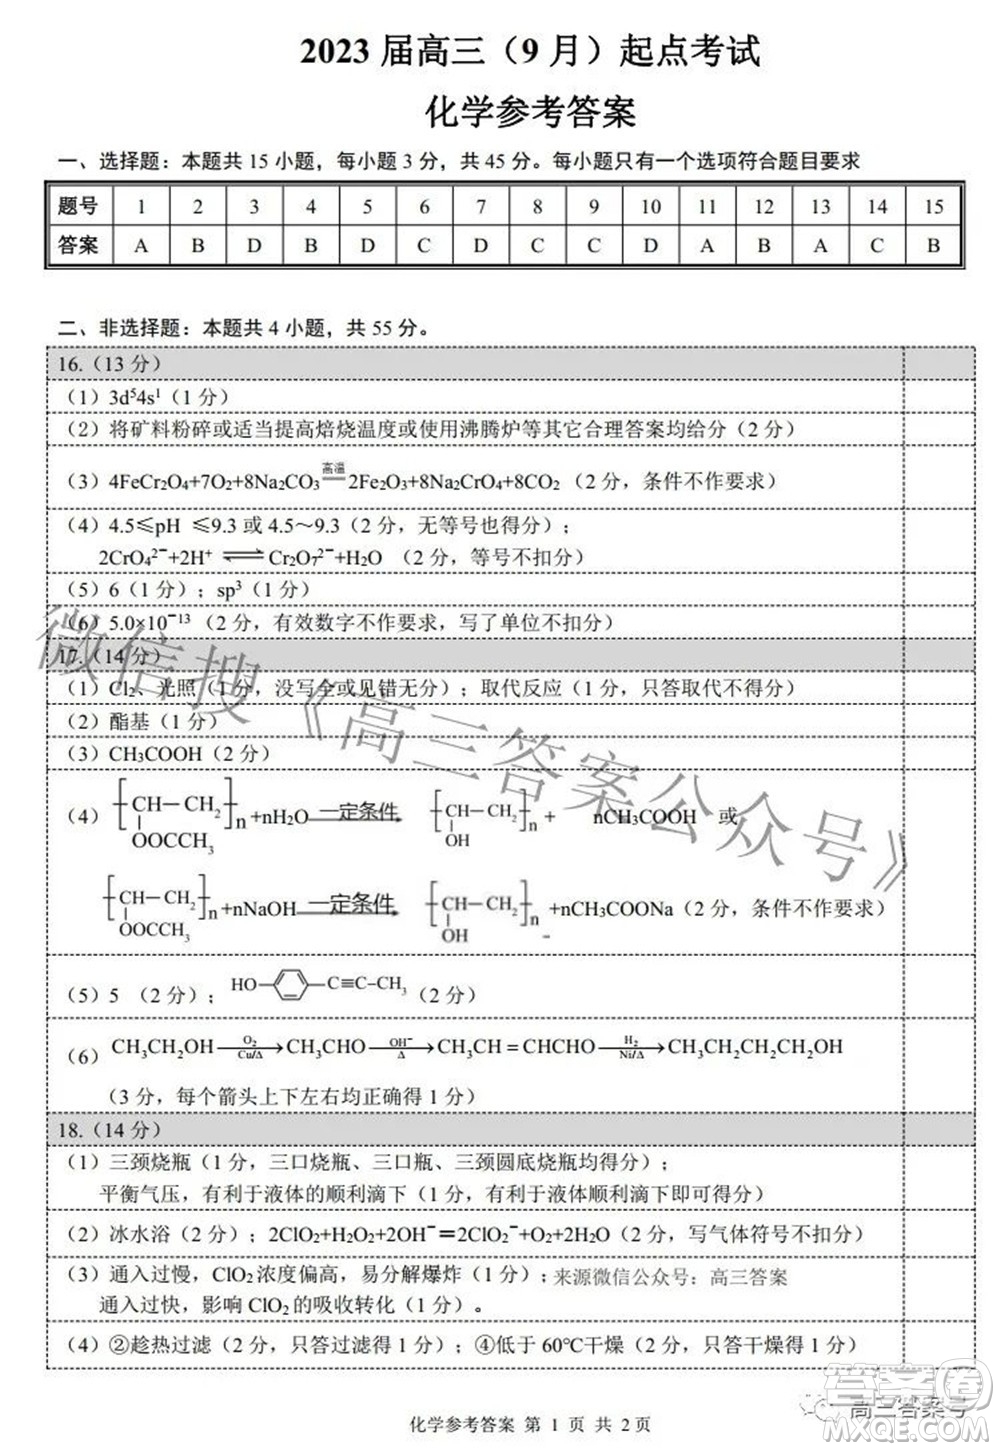 2023 届高三（9 月）起点考试
化学参考答案
一、选择题：本题共 15 小题，每小题 3 分，共 45 分。每小题只有一个选项符合题目要求
题号 1 2 3 4 5 6 7 8 9 10 11 12 13 14 15
答案 A B D B D C D C C D A B A C B
二、非选择题：本题共 4 小题，共 55 分。
16.（13 分）
（1）3d⁵4s¹（1 分）
（2）将矿料粉碎或适当提高焙烧温度或使用沸腾炉等其它合理答案均给分（2 分）
（3）4FeCr₂O₄+7O₂+8Na₂CO₃ 高温 2Fe₂O₃+8Na₂CrO₄+8CO₂（2 分，条件不作要求）
（4）4.5≤pH ≤9.3 或 4.5～9.3（2 分，无等号也得分）；
2CrO₄²⁻+2H⁺ ⇌ Cr₂O₇²⁻+H₂O （2 分，等号不扣分）
（5）6（1 分）；sp³（1 分）
（6）5.0×10⁻¹³（2 分，有效数字不作要求，写了单位不扣分）
17.（14 分）
（1）Cl₂、光照（1 分，没写全或见错无分）；取代反应（1 分，只答取代不得分）
（2）酯基（1 分）
（3）CH₃COOH（2 分）
（4）[CH—CH₂]n OOCCH₃ +nH₂O 一定条件 [CH—CH₂]n OH + nCH₃COOH 或
[CH—CH₂]n OOCCH₃ +nNaOH 一定条件 [CH—CH₂]n OH +nCH₃COONa（2 分，条件不作要求）
（5）5 （2 分）；HO C≡C-CH₃（2 分）
（6）CH₃CH₂OH O₂ Cu/Δ → CH₃CHO OH⁻ Δ → CH₃CH＝CHCHO H₂ Ni/Δ → CH₃CH₂CH₂CH₂OH
（3 分，每个箭头上下左右均正确得 1 分）
18.（14 分）
（1）三颈烧瓶（1 分，三口烧瓶、三口瓶、三颈圆底烧瓶均得分）；
平衡气压，有利于液体的顺利滴下（1 分，有利于液体顺利滴下即可得分）
（2）冰水浴（2 分）；2ClO₂+H₂O₂+2OH⁻＝2ClO₂⁻+O₂+2H₂O（2 分，写气体符号不扣分）
（3）通入过慢，ClO₂浓度偏高，易分解爆炸（1 分）；来源微信公众号：高三答案
通入过快，影响 ClO₂的吸收转化（1 分）。
（4）②趁热过滤（2 分，只答过滤得 1 分）；④低于 60℃干燥（2 分，只答干燥得 1 分）
化学参考答案 第 1 页 共 2 页
微信搜《高三答案公众号》
高三答案号
答案圈
MXQE.COM